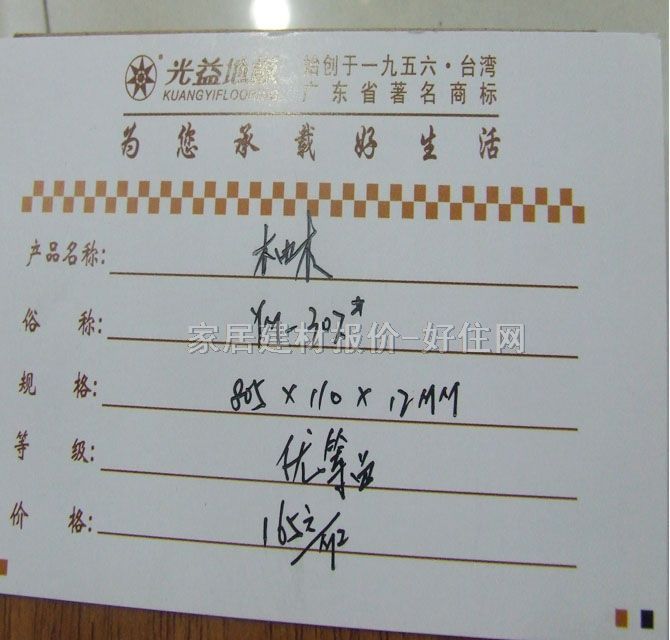 光益地板 始创于一九五六·台湾
KUANGYIFLOORING 广东省著名商标
为您承载好生活
产品名称: 柚木
俗 称: YM-307#
家居建材报价-好住网
规 格: 805×110×12MM
等 级: 优等品
价 格: 165元/M2